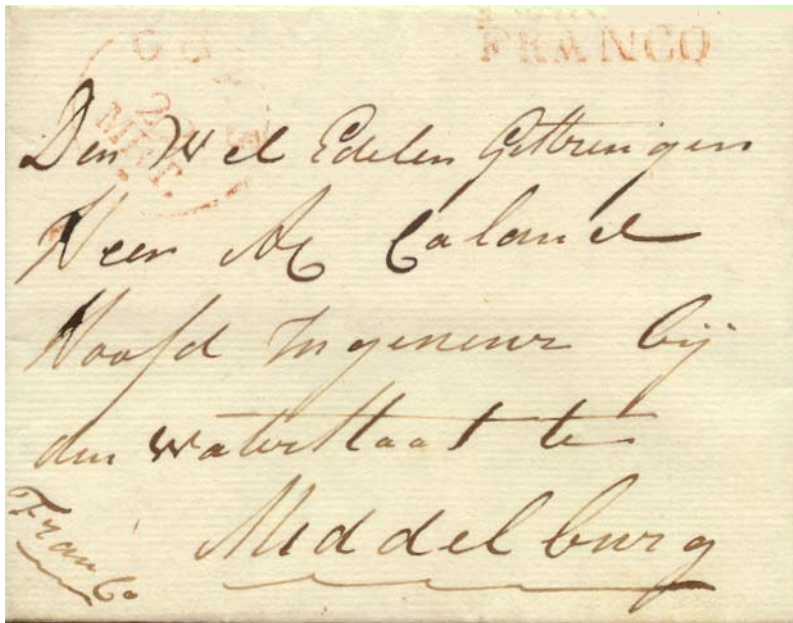 FRANCO
Den Wel Edelen Gestrengen
Heer AC Caland
Hoofd Ingenieur bij
den Waterstaat te
Middelburg
Franco